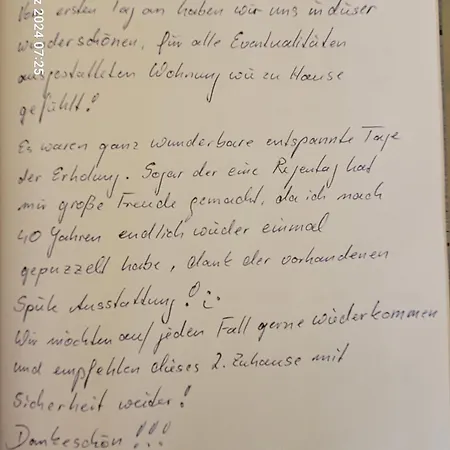 Vom ersten Tag an haben wir uns in dieser
wunderschönen, für alle Eventualitäten
ausgestatteten Wohnung wie zu Hause
gefühlt!
Es waren ganz wunderbare entspannte Tage
der Erholung. Sogar der eine Regentag hat
mir große Freude gemacht, da ich nach
40 Jahren endlich wieder einmal
gepuzzelt habe, dank der vorhandenen
Spiele Ausstattung! :
Wir möchten auf jeden Fall gerne wiederkommen
und empfehlen dieses 2. Zuhause mit
Sicherheit weiter!
Dankeschön!!!
2024 07:25